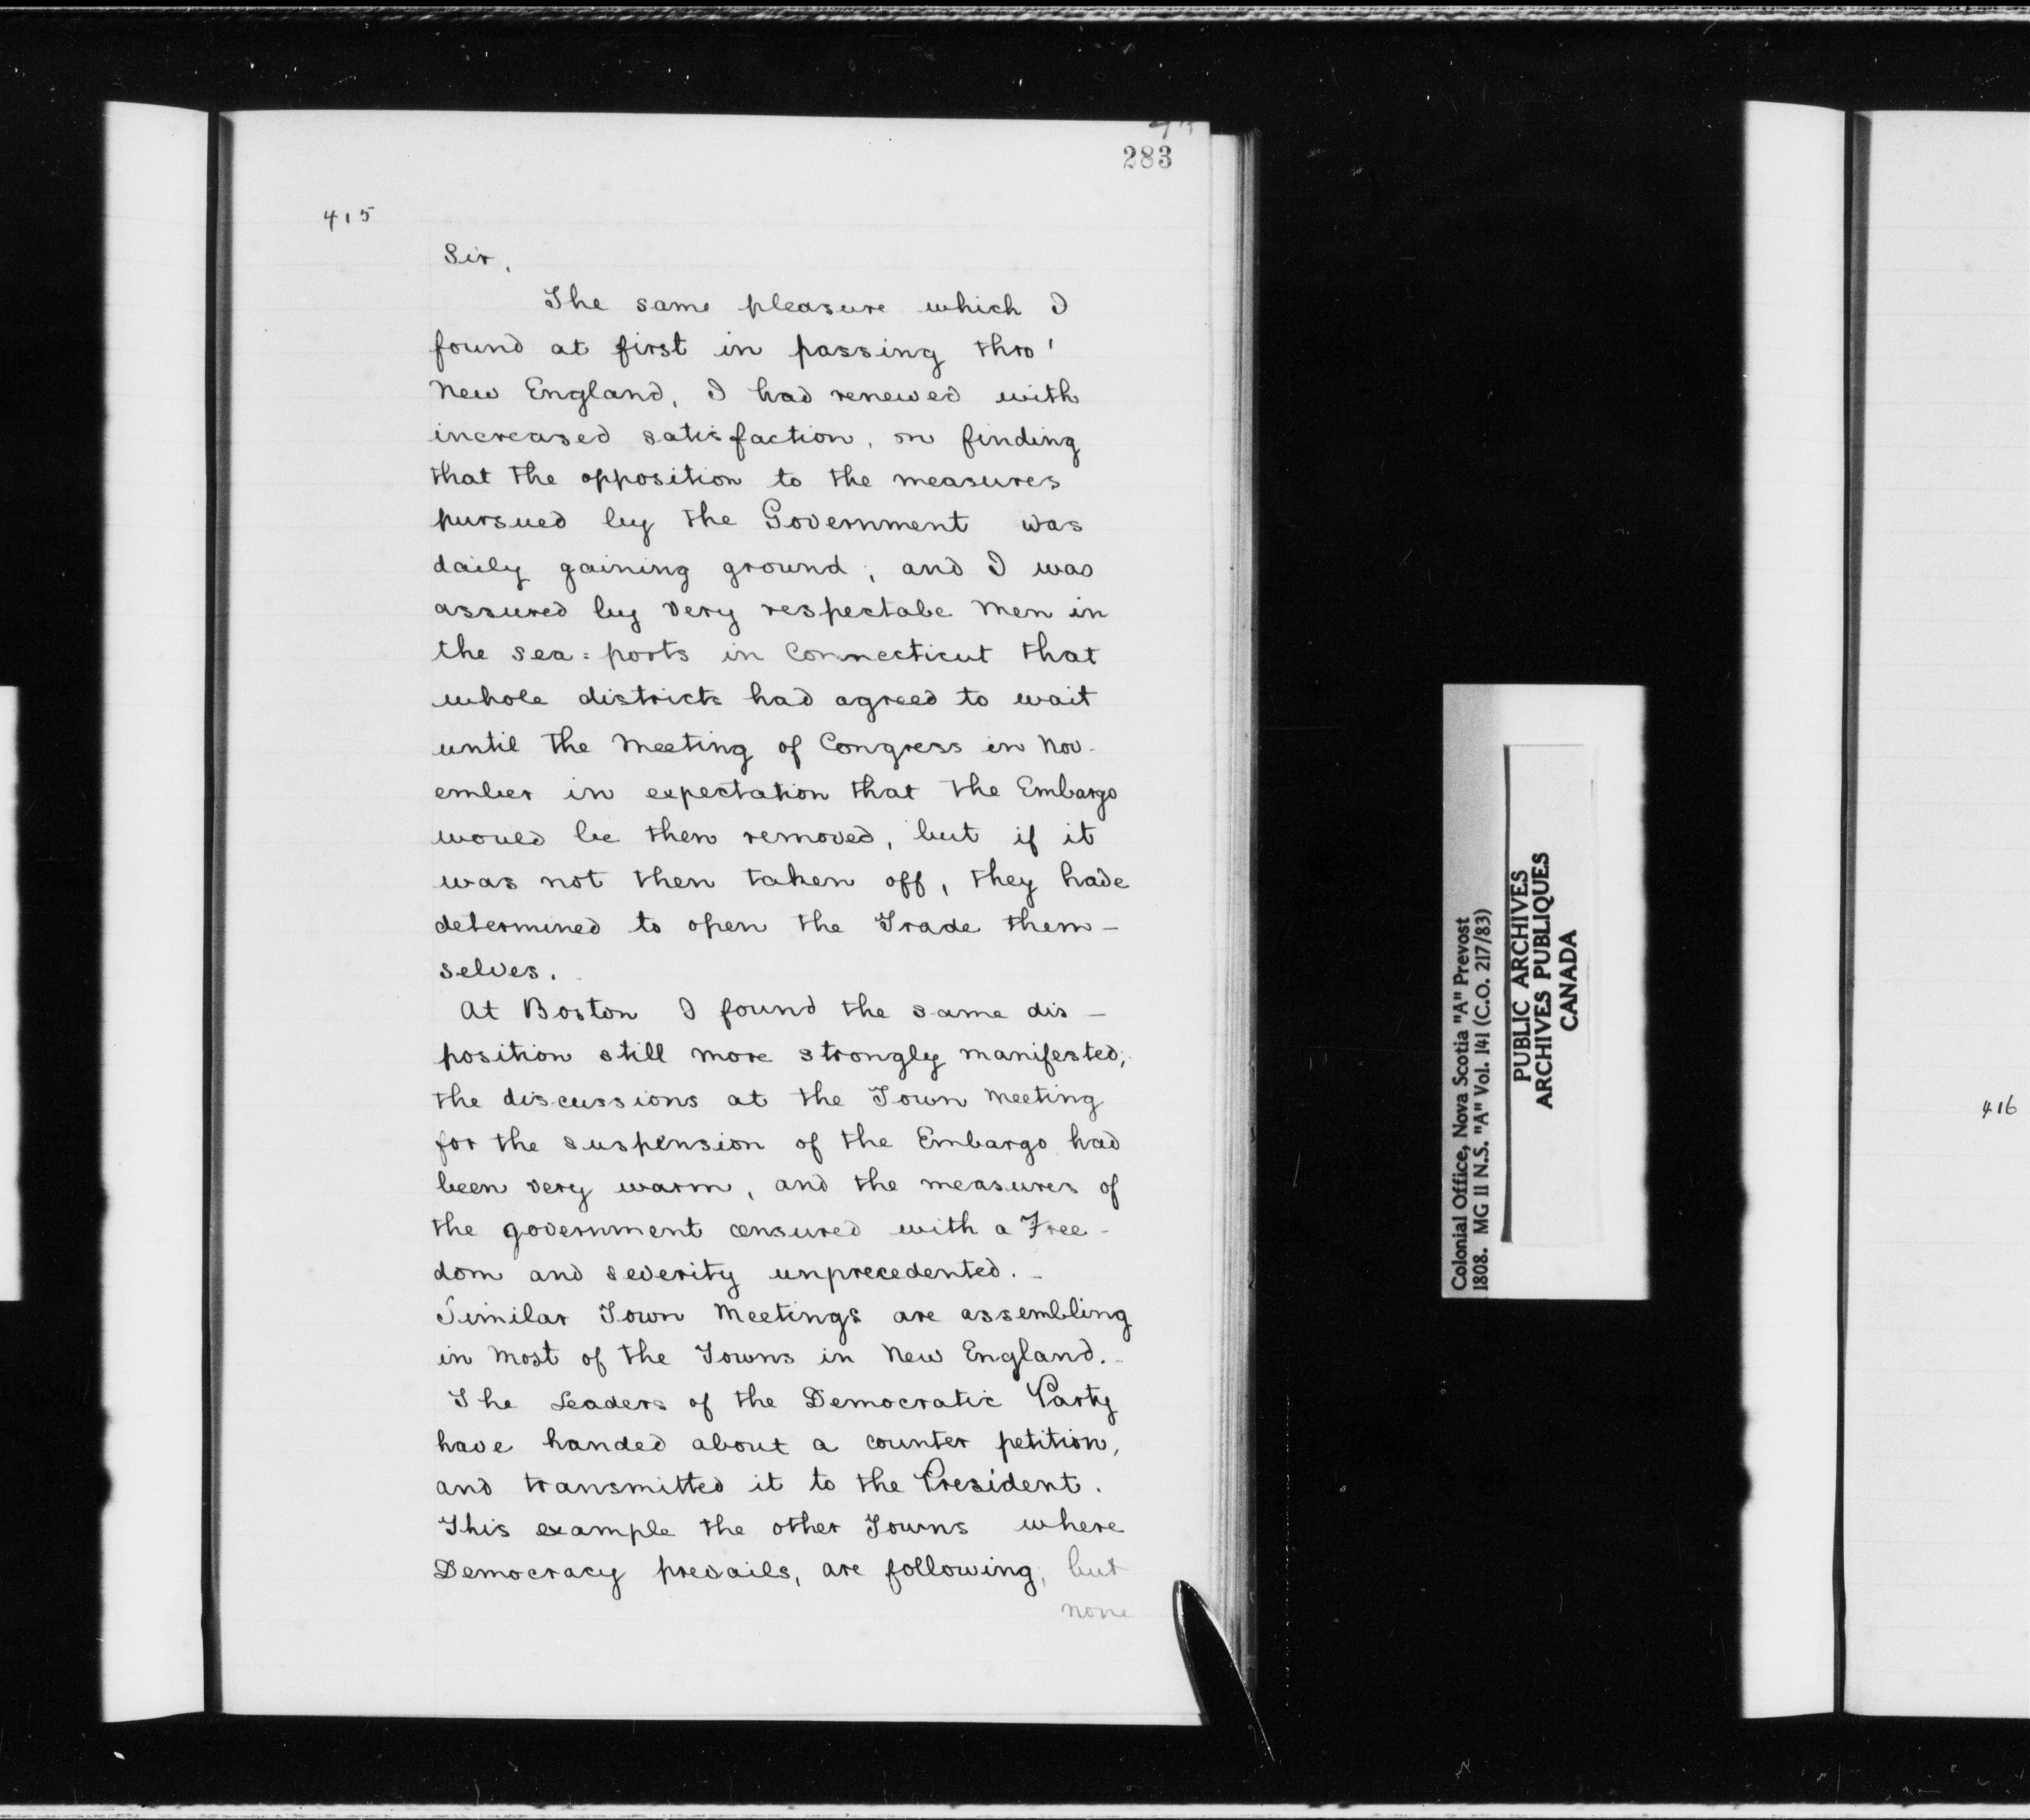 283
415
Sir,
The same pleasure which I
found at first in passing thro'
New England, I had renewed with
increased satisfaction, on finding
that the opposition to the measures
pursued by the Government was
daily gaining ground; and I was
assured by very respectabe men in
the sea=ports in Connecticut that
whole districts had agreed to wait
until the Meeting of Congress in Nov-
ember in expectation that the Embargo
would be then removed, but if it
was not then taken off, they have
determined to open the Trade them-
selves.
At Boston I found the same dis-
position still more strongly manifested;
the discussions at the Town Meeting
for the suspension of the Embargo had
been very warm, and the measures of
the government censured with a Free-
dom and severity unprecedented. -
Similar Town Meetings are assembling
in most of the Towns in New England. -
The Leaders of the Democratic Party
have handed about a counter petition,
and transmitted it to the President.
This example the other Towns where
Democracy prevails, are following; but
none
Colonial Office, Nova Scotia "A" Prevost
1808. MG 11 N.S. "A" Vol. 141 (C.O. 217/83)
PUBLIC ARCHIVES
ARCHIVES PUBLIQUES
CANADA
416